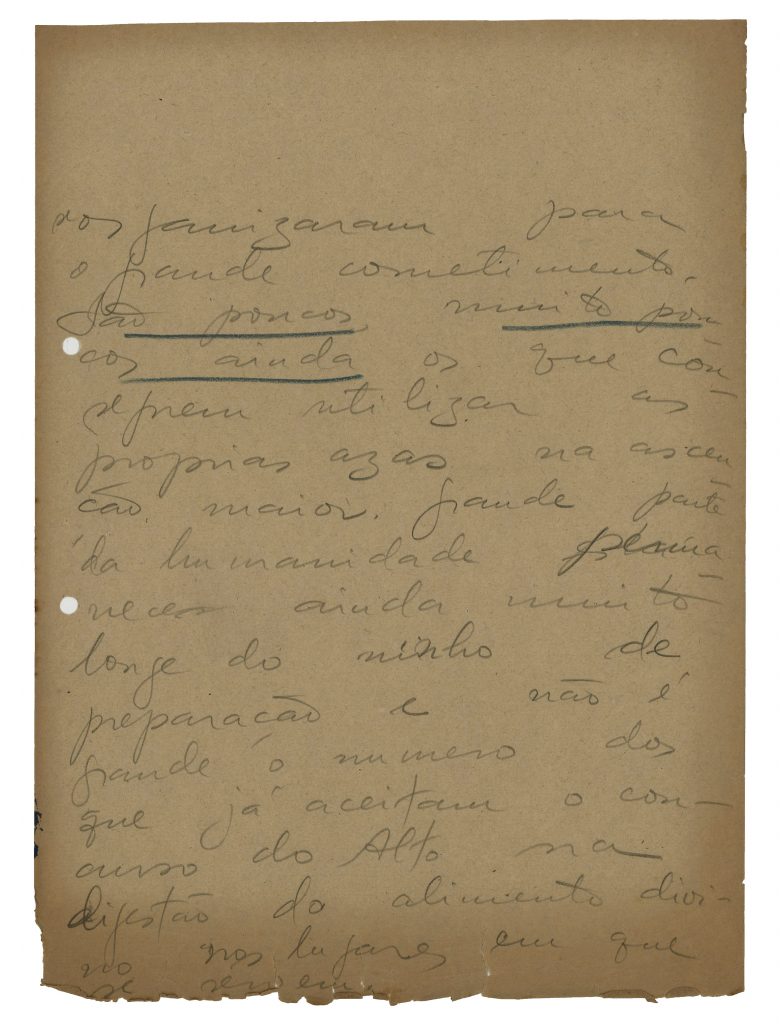 ros ganizaram para
o grande cometimento.
São poucos, muito pou-
cos ainda os que con-
seguem utilizar as
proprias azas na ascen-
ção maior. Grande parte
da humanidade perma-
nece ainda muito
longe do ninho de
preparação e não é
grande o numero dos
que já aceitam o con-
curso do Alto na
digestão do alimento divi-
no nos lugares em que
se servem.